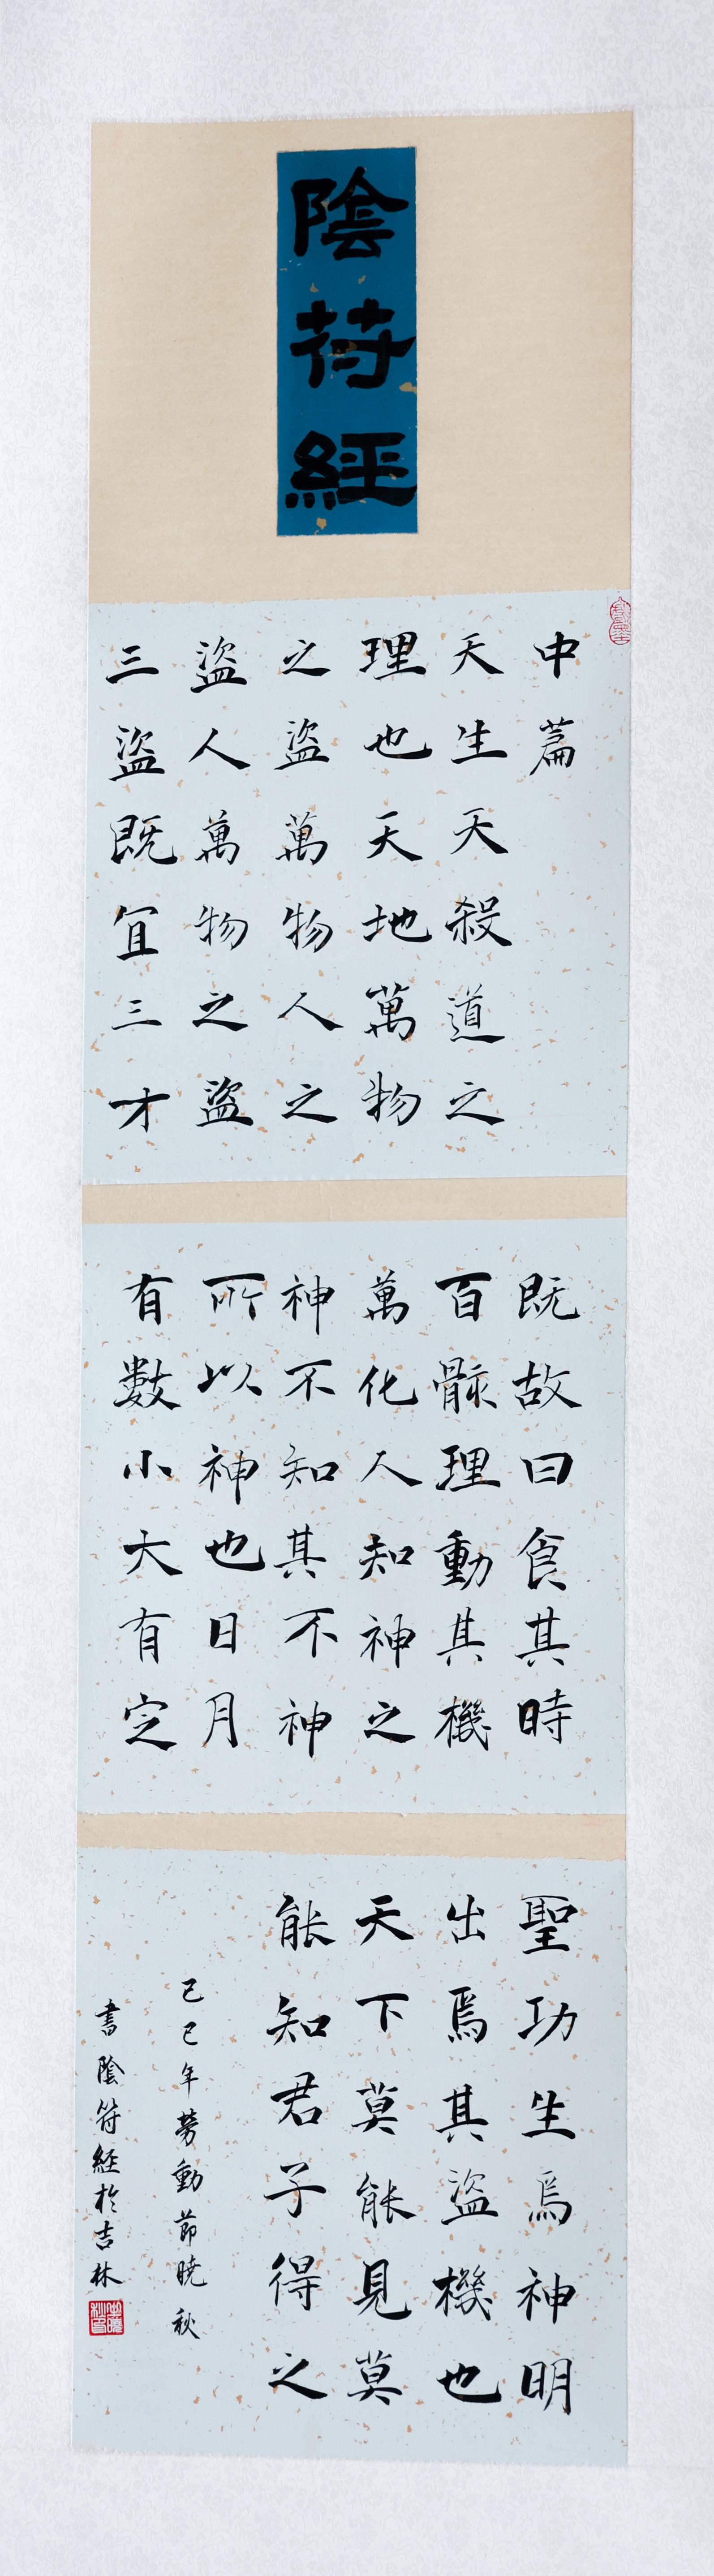 陰符經
中篇
天生天殺道之
理也天地萬物
之盜萬物人之
盜人萬物之盜
三盜既宜三才
既故曰食其時
百骸理動其機
萬化人知神之
神不知其不神
所以神也日月
有數小大有定
聖功生焉神明
出焉其盜機也
天下莫能見莫
能知君子得之
己巳年勞動節曉秋
書陰符經於吉林